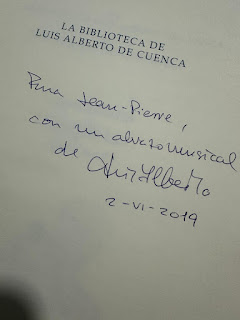 LA BIBLIOTECA DE
LUIS ALBERTO DE CUENCA
Para Jean-Pierre,
con un abrazo musical
de Luis Alberto
2-VI-2019